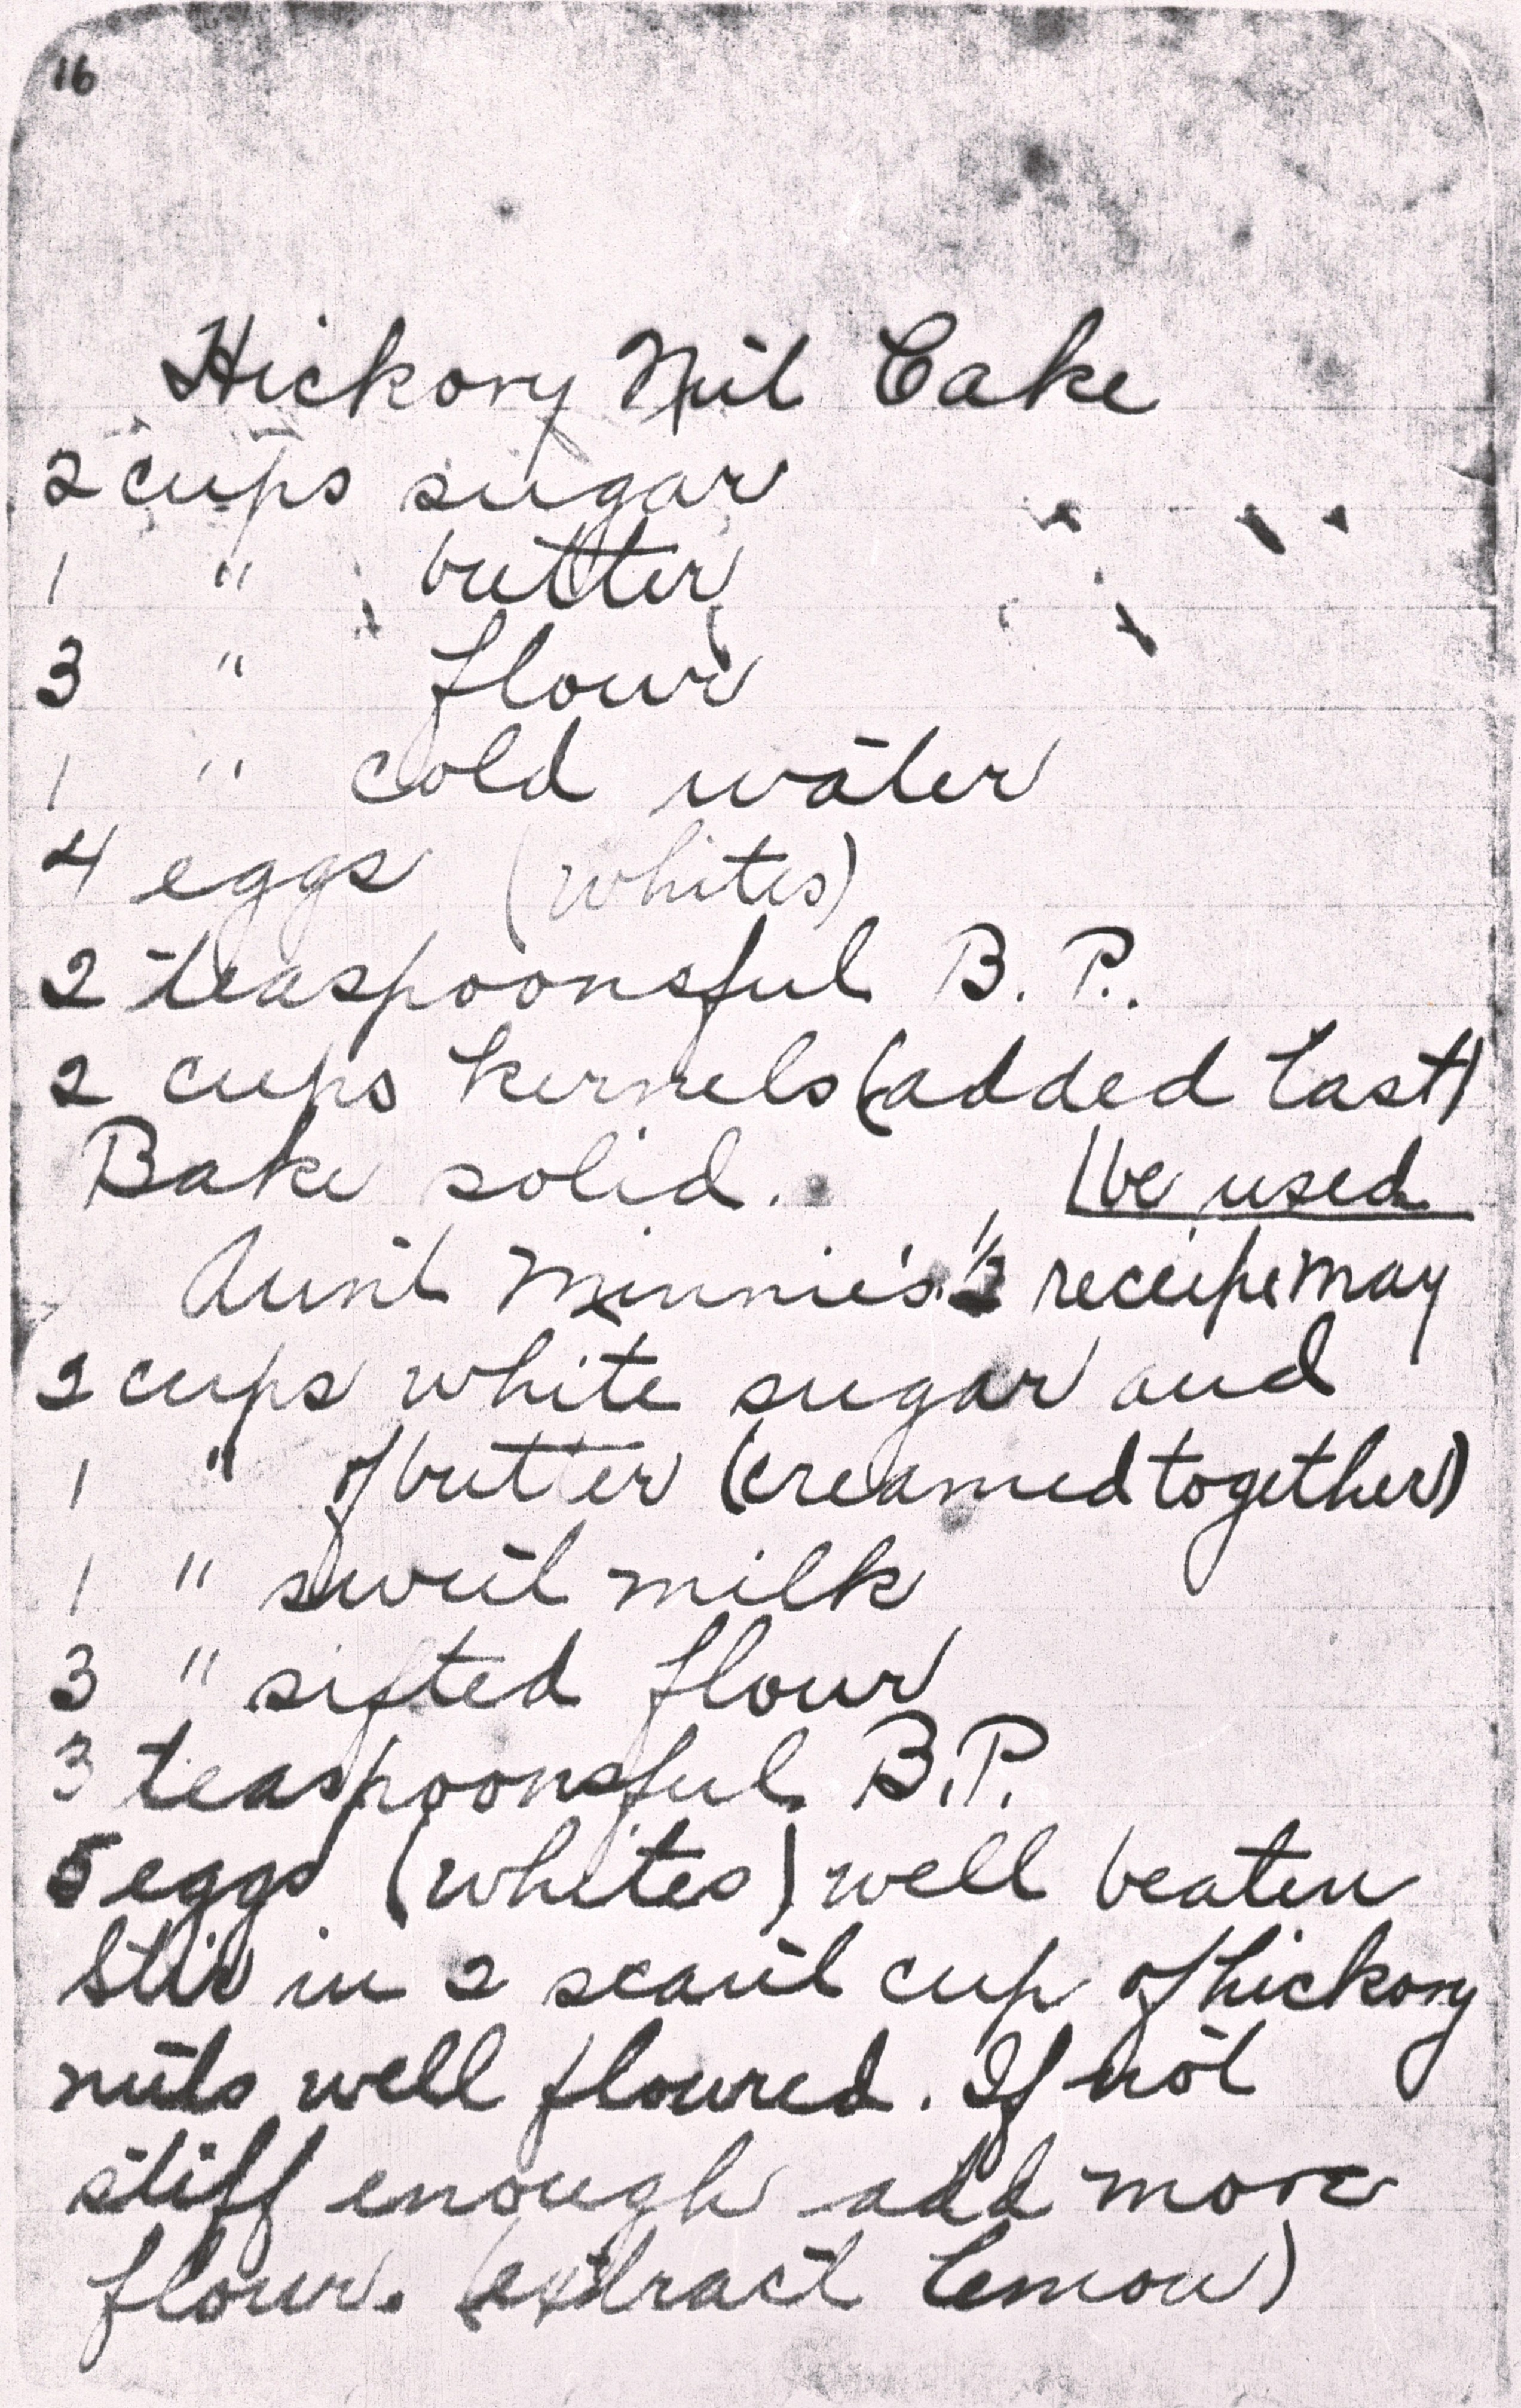 16
Hickory Nut Cake
2 cups sugar
1 " butter
3 " flour
1 " cold water
4 eggs (whites)
2 teaspoonsful B. P.
2 cups kernels (added last)
Bake solid. be used
Aunt Minnie's. 1/2 receipe may
2 cups white sugar and
1 " of butter (creamed together)
1 " sweet milk
3 " sifted flour
3 teaspoonsful B.P.
5 eggs (whites) well beaten
Stir in 2 scant cup of hickory
nuts well floured. If not
stiff enough add more
flour. (extract lemon)